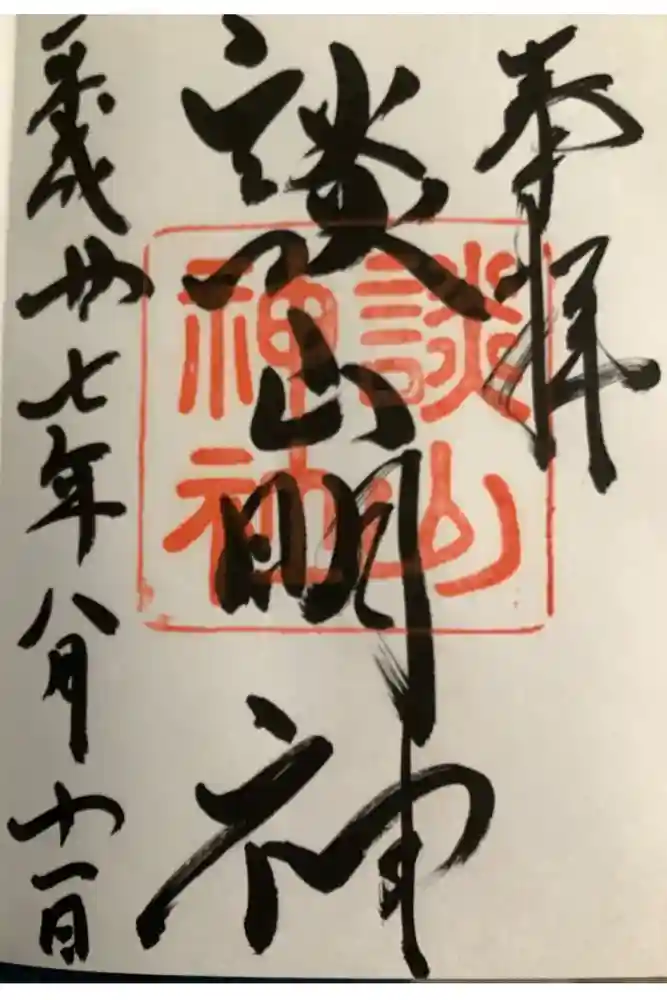 奉拝
談山明神
平成廿七年八月十一日
談山
神社